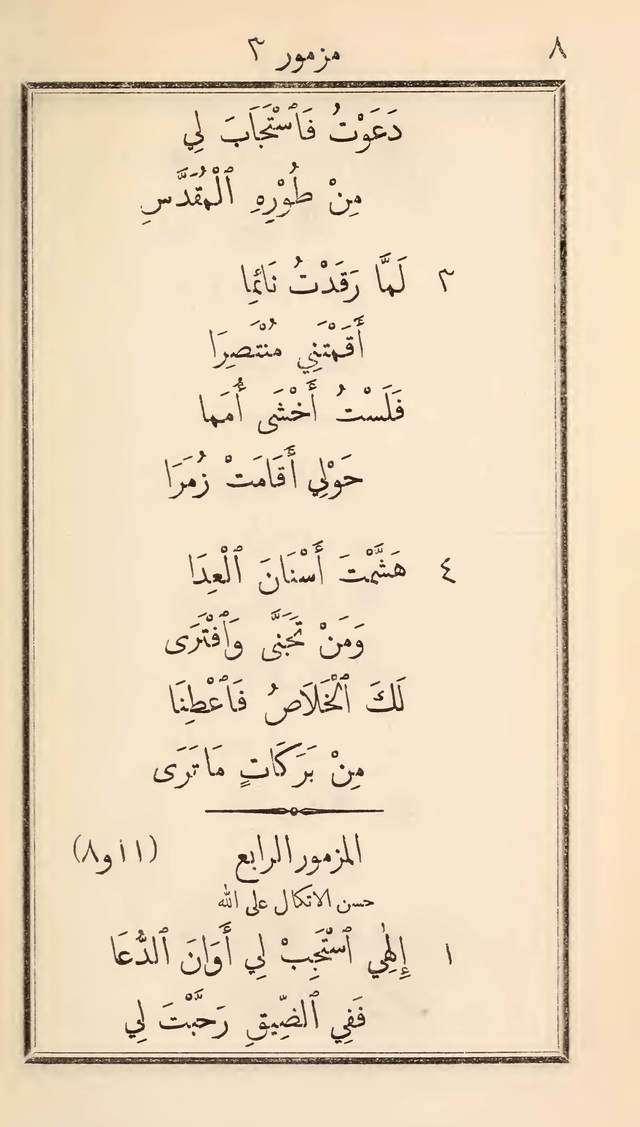 ٨ مزمور ٣
دَعَوْتُ فَٱسْتَجَابَ لِي
مِنْ طُوْرِهِ ٱلْمُقَدَّسِ
٣ لَمَّا رَقَدْتُ نَائِمِا
أَقَمْتَنِي مُنْتَصِرَا
فَلَسْتُ أَخْشَى أُمَمَا
حَوْلِي أَقَامَتْ زُمَرَا
٤ هَشَّمْتَ أَسْنَانَ ٱلْعِدَا
وَمَنْ تَجَنَّى وَٱفْتَرَى
لَكَ ٱلْخَلَاصُ فَٱعْطِنَا
مِنْ بَرَكَاتٍ مَا تَرَى
المزمور الرابع (١١ او ٨)
حسن الاتكال على الله
١ إِلٰهِي ٱسْتَجِبْ لِي أَوَانَ ٱلدُّعَا
فَفِي ٱلضِّيقِ رَحَّبْتَ لِي